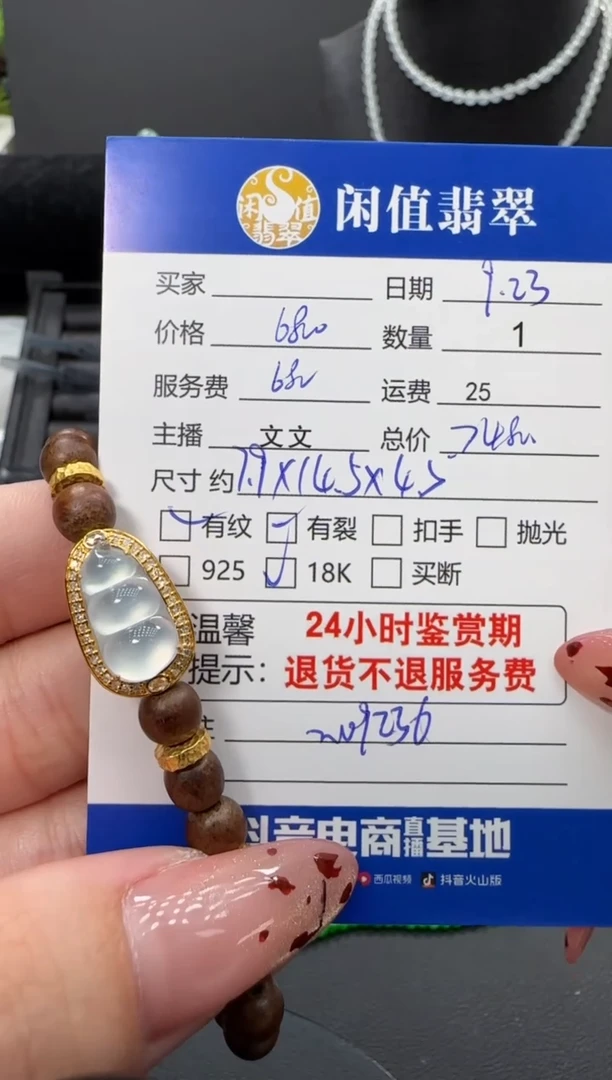 闲值翡翠
闲值翡翠
买家 日期 9.23
价格 6800 数量 1
服务费 680 运费 25
主播 文文 总价
尺寸 约 7.9X14.5X4.5
有纹 有裂 扣手 抛光
925 18K 买断
温馨 24小时鉴赏期
提示: 退货不退服务费
抖音电商直播基地
西瓜视频 抖音火山版